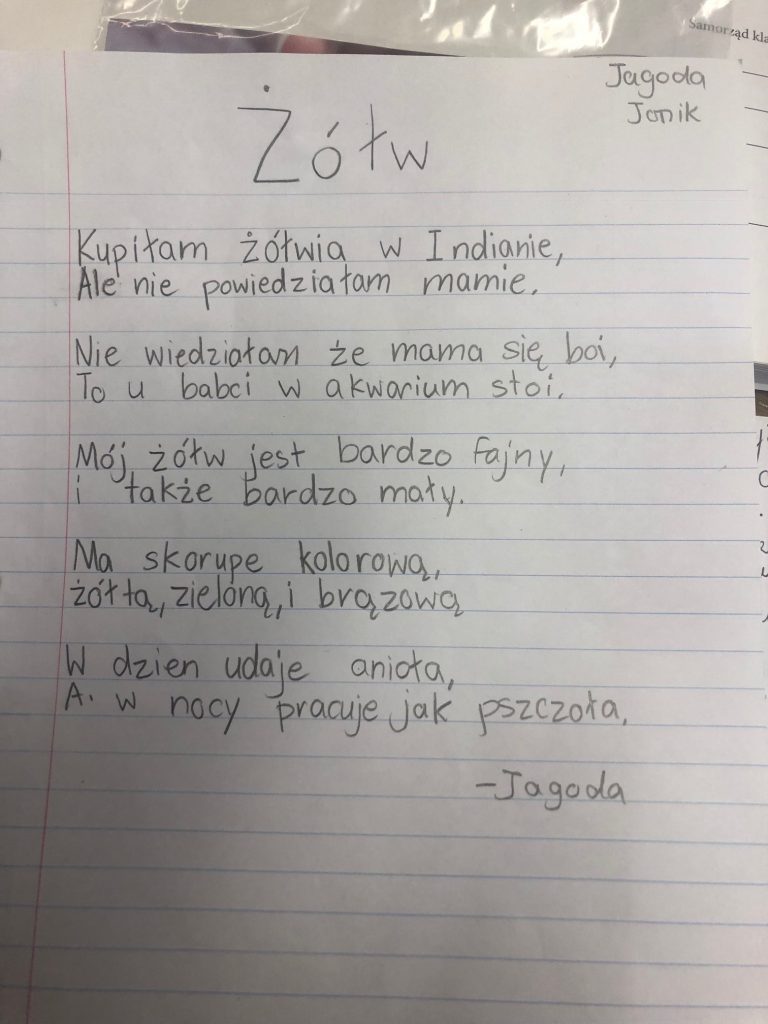 Samorząd kla
Jagoda
Jonik
Żółw
Kupiłam żółwia w Indianie,
Ale nie powiedziałam mamie.
Nie wiedziałam że mama się boi,
To u babci w akwarium stoi.
Mój żółw jest bardzo fajny,
i także bardzo mały.
Ma skorupe kolorową,
żółtą, zieloną, i brązową
W dzien udaje anioła,
A. w nocy pracuje jak pszczoła.
-Jagoda